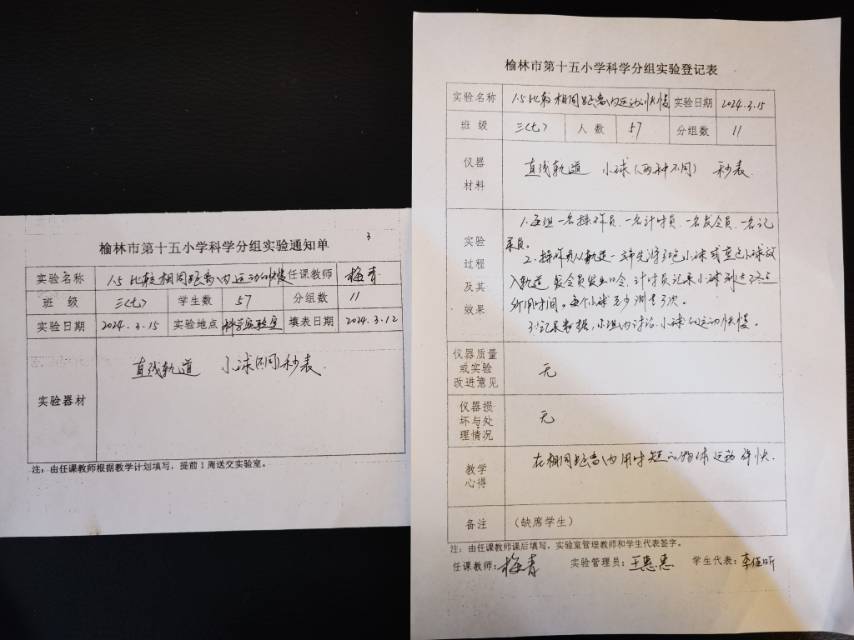 榆林市第十五小学科学分组实验通知单
3
实验名称 1.5比较相同距离内运动的快慢 任课教师 梅青
班 级 三(七) 学生数 57 分组数 11
实验日期 2024.3.15 实验地点 科学实验室 填表日期 2024.3.12
实验器材 直线轨道 小球(不同) 秒表
注：由任课教师根据教学计划填写，提前1周送交实验室。
榆林市第十五小学科学分组实验登记表
实验名称 1.5比较相同距离内运动快慢 实验日期 2024.3.15
班 级 三(七) 人 数 57 分组数 11
仪器
材料
直线轨道 小球(两种不同) 秒表
实验
过程
及其
效果
1.每组一名操作员、一名计时员、一名发令员、一名记
录员。
2.操作员从轨道一端先将1号小球或重色小球放
入轨道 发令员发出口令，计时员记录小球到达终点
所用时间。每个小球至少测量3次。
3.记录数据，小组内讨论小球的运动快慢。
仪器质量
或实验
改进意见
无
仪器损
坏与处
理情况
无
教学
心得
在相同距离内用时短的物体运动得快.
备注 （缺席学生）
注：由任课教师课后填写，实验室管理教师和学生代表签字。
任课教师：梅青 实验管理员：王惠惠 学生代表：李佳昕